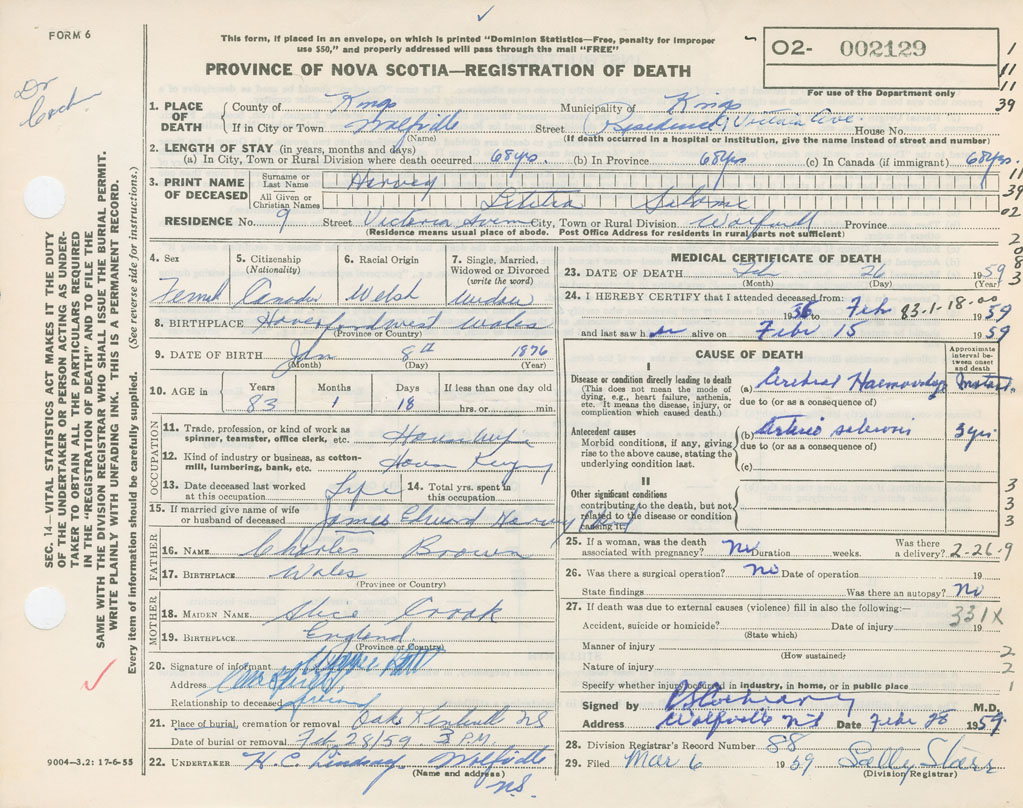 FORM 6
This form, if placed in an envelope, on which is printed "Dominion Statistics—Free, penalty for improper
use $50," and properly addressed will pass through the mail "FREE"
PROVINCE OF NOVA SCOTIA—REGISTRATION OF DEATH
O2- 002129
For use of the Department only
1
11
11
39
11
39
02
2
0
8
3
Dr
SEC. 14—VITAL STATISTICS ACT MAKES IT THE DUTY
OF THE UNDERTAKER OR PERSON ACTING AS UNDER-
TAKER TO OBTAIN ALL THE PARTICULARS REQUIRED
IN THE "REGISTRATION OF DEATH" AND TO FILE THE
SAME WITH THE DIVISION REGISTRAR WHO SHALL ISSUE THE BURIAL PERMIT.
WRITE PLAINLY WITH UNFADING INK. THIS IS A PERMANENT RECORD.
Every item of information should be carefully supplied. (See reverse side for instructions.)
1. PLACE OF DEATH { County of Kings Municipality of Kings
If in City or Town Wolfville Street (Residence) Victoria Ave. House No.
(Name) (If death occurred in a hospital or institution, give the name instead of street and number)
2. LENGTH OF STAY (in years, months and days)
(a) In City, Town or Rural Division where death occurred 68yrs. (b) In Province 68yrs (c) In Canada (if immigrant) 68yrs.
3. PRINT NAME OF DECEASED { Surname or Last Name Harvey
All Given or Christian Names Letitia Salome
RESIDENCE No. 9 Street Victoria Avenue City, Town or Rural Division Wolfville Province
(Residence means usual place of abode. Post Office Address for residents in rural parts not sufficient)
4. Sex 5. Citizenship (Nationality) 6. Racial Origin 7. Single, Married, Widowed or Divorced (write the word)
Female Canada Welsh Widow
8. BIRTHPLACE Haverfordwest Wales
(Province or Country)
9. DATE OF BIRTH Jan 8th 1876
(Month) (Day) (Year)
10. AGE in { Years Months Days If less than one day old
83 1 18 hrs. or min.
OCCUPATION
11. Trade, profession, or kind of work as spinner, teamster, office clerk, etc. Housewife
12. Kind of industry or business, as cotton-mill, lumbering, bank, etc. House Keeping
13. Date deceased last worked at this occupation Life 14. Total yrs. spent in this occupation
15. If married give name of wife or husband of deceased James Edward Harvey
FATHER
16. NAME Charles Brown
17. BIRTHPLACE Wales
(Province or Country)
MOTHER
18. MAIDEN NAME Alice Crook
19. BIRTHPLACE England
(Province or Country)
20. Signature of informant
Address
Relationship to deceased friend
21. Place of burial, cremation or removal Oak Kentville NS
Date of burial or removal Feb 28/59 3 P.M.
22. UNDERTAKER H. C. Lindsay Wolfville
(Name and address) N.S.
9004—3.2: 17-6-55
MEDICAL CERTIFICATE OF DEATH
23. DATE OF DEATH Feb 26 1959
(Month) (Day) (Year)
24. I HEREBY CERTIFY that I attended deceased from:
1956 Feb 83-1-18-00 1959
and last saw h er alive on Febr 15 1959
CAUSE OF DEATH
Approximate interval between onset and death
I
Disease or condition directly leading to death
(This does not mean the mode of dying, e.g., heart failure, asthenia, etc. It means the disease, injury, or complication which caused death.)
(a) Cerebral Haemorrhage instant
due to (or as a consequence of)
Antecedent causes
Morbid conditions, if any, giving rise to the above cause, stating the underlying condition last.
(b) Arterio sclerosis 3yrs
due to (or as a consequence of)
(c)
II
Other significant conditions
contributing to the death, but not related to the disease or condition causing it.
3
3
3
25. If a woman, was the death associated with pregnancy? No Duration weeks. Was there a delivery? 2-26-9
26. Was there a surgical operation? No Date of operation 19
State findings Was there an autopsy? No
27. If death was due to external causes (violence) fill in also the following:— 331X
Accident, suicide or homicide? Date of injury 19
(State which)
Manner of injury 2
(How sustained)
Nature of injury 2
Specify whether injury occurred in industry, in home, or in public place 1
Signed by M.D.
Address Wolfville N.S. Date Febr 28 1959
28. Division Registrar's Record Number 88
29. Filed Mar 6 1959 Sally Starr
(Division Registrar)